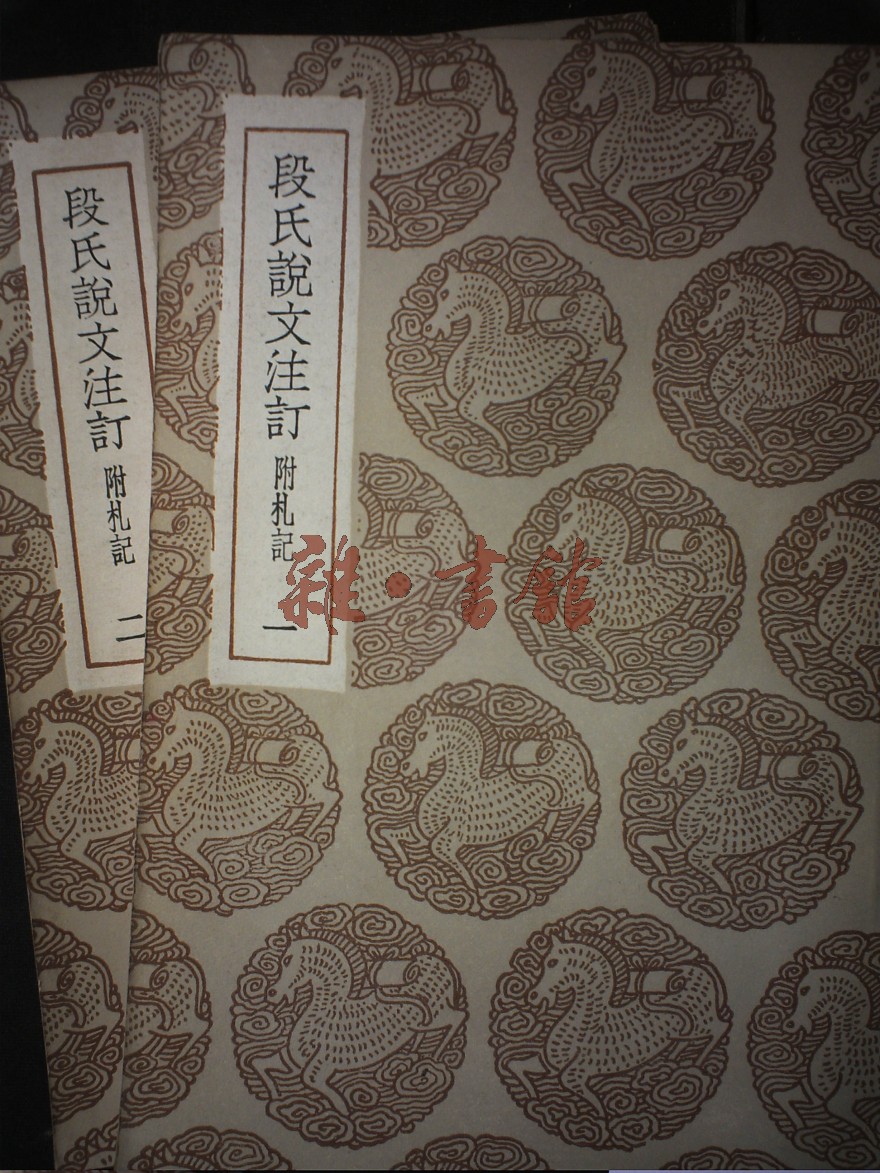 段氏說文注訂 附札記 一
段氏說文注訂 附札記 二
雜·書館